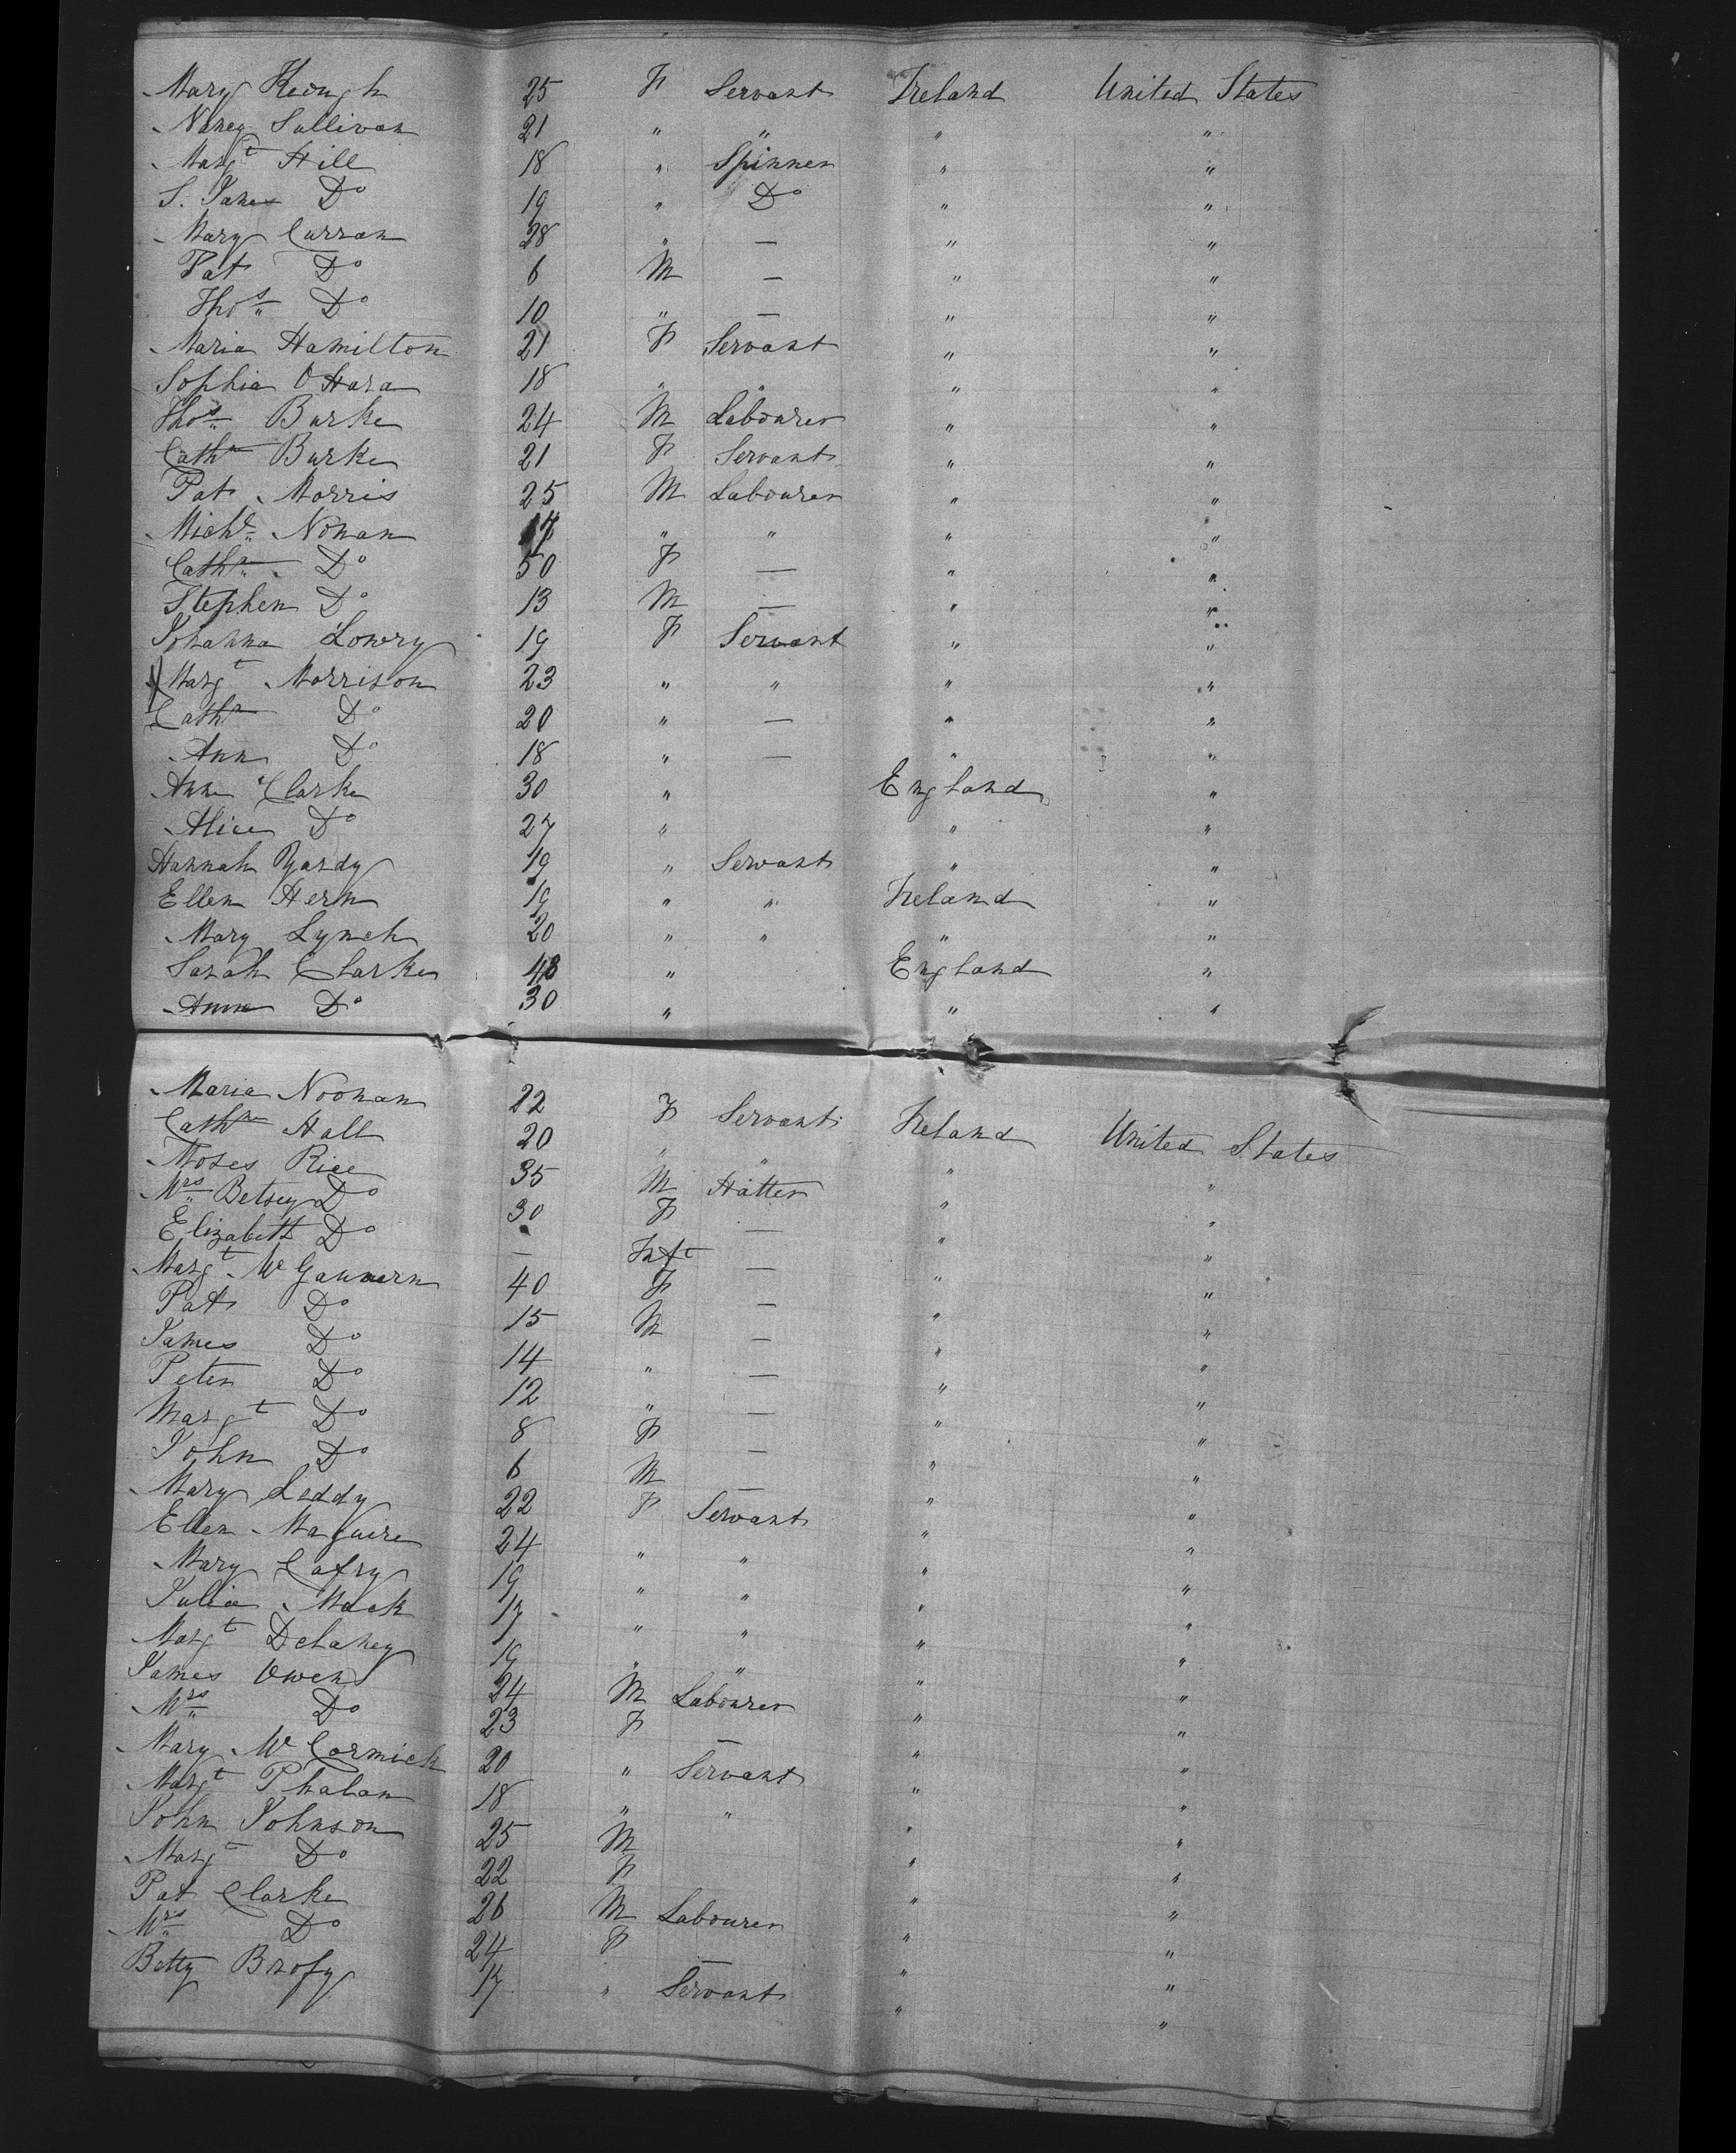 Mary Keough 25 F Servant Ireland United States
Nancy Sullivan 21 " " " "
Margt Hill 18 " Spinner " "
S. James Do 19 " Do " "
Mary Curran 28 " — " "
Pat Do 6 M — " "
Thos Do 10 " — " "
Maria Hamilton 21 F Servant " "
Sophia O Hara 18 " " " "
Thos Burke 24 M Labourer " "
Cathn Burke 21 F Servant " "
Pat Morris 25 M Labourer " "
Michl Nonan 17 " " " "
Cathn Do 50 F — " "
Stephen Do 13 M — " "
Johanna Lowry 19 F Servant " "
Margt Morrison 23 " " " "
Cathn Do 20 " — " "
Ann Do 18 " — " "
Ann Clarke 30 " England "
Alice Do 27 " " "
Hannah Yardy 19 " Servant " "
Ellen Hern 19 " " Ireland "
Mary Lynch 20 " " " "
Sarah Clarke 48 " England "
Anne Do 30 " " "
Maria Noonan 22 F Servant Ireland United States
Cathne Hall 20 " " " "
Moses Rice 35 M Hatter " "
Mrs Betsey Do 30 F — " "
Elizabeth Do — Inft — " "
Margt Mc Gauvern 40 F — " "
Pat Do 15 M — " "
James Do 14 " — " "
Peter Do 12 " — " "
Margt Do 8 F — " "
John Do 6 M — " "
Mary Leddy 22 F Servant " "
Ellen Maguire 24 " " " "
Mary Cafry 19 " " " "
Julia Mack 17 " " " "
Margt Delaney 19 " " " "
James Owen 24 M Labourer " "
Mrs Do 23 F — " "
Mary Mc Cormick 20 " Servant " "
Margt Phalan 18 " " " "
John Johnson 25 M " "
Margt Do 22 F " "
Pat Clarke 26 M Labourer " "
Mrs Do 24 F — " "
Betty Brofy 17 " Servant " "